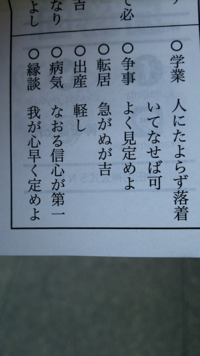 よし
なり
吉
て必
○学業 人にたよらず落着
いてなせば可
○争事 よく見定めよ
○転居 急がぬが吉
○出産 軽し
○病気 なおる信心が第一
○縁談 我が心早く定めよ